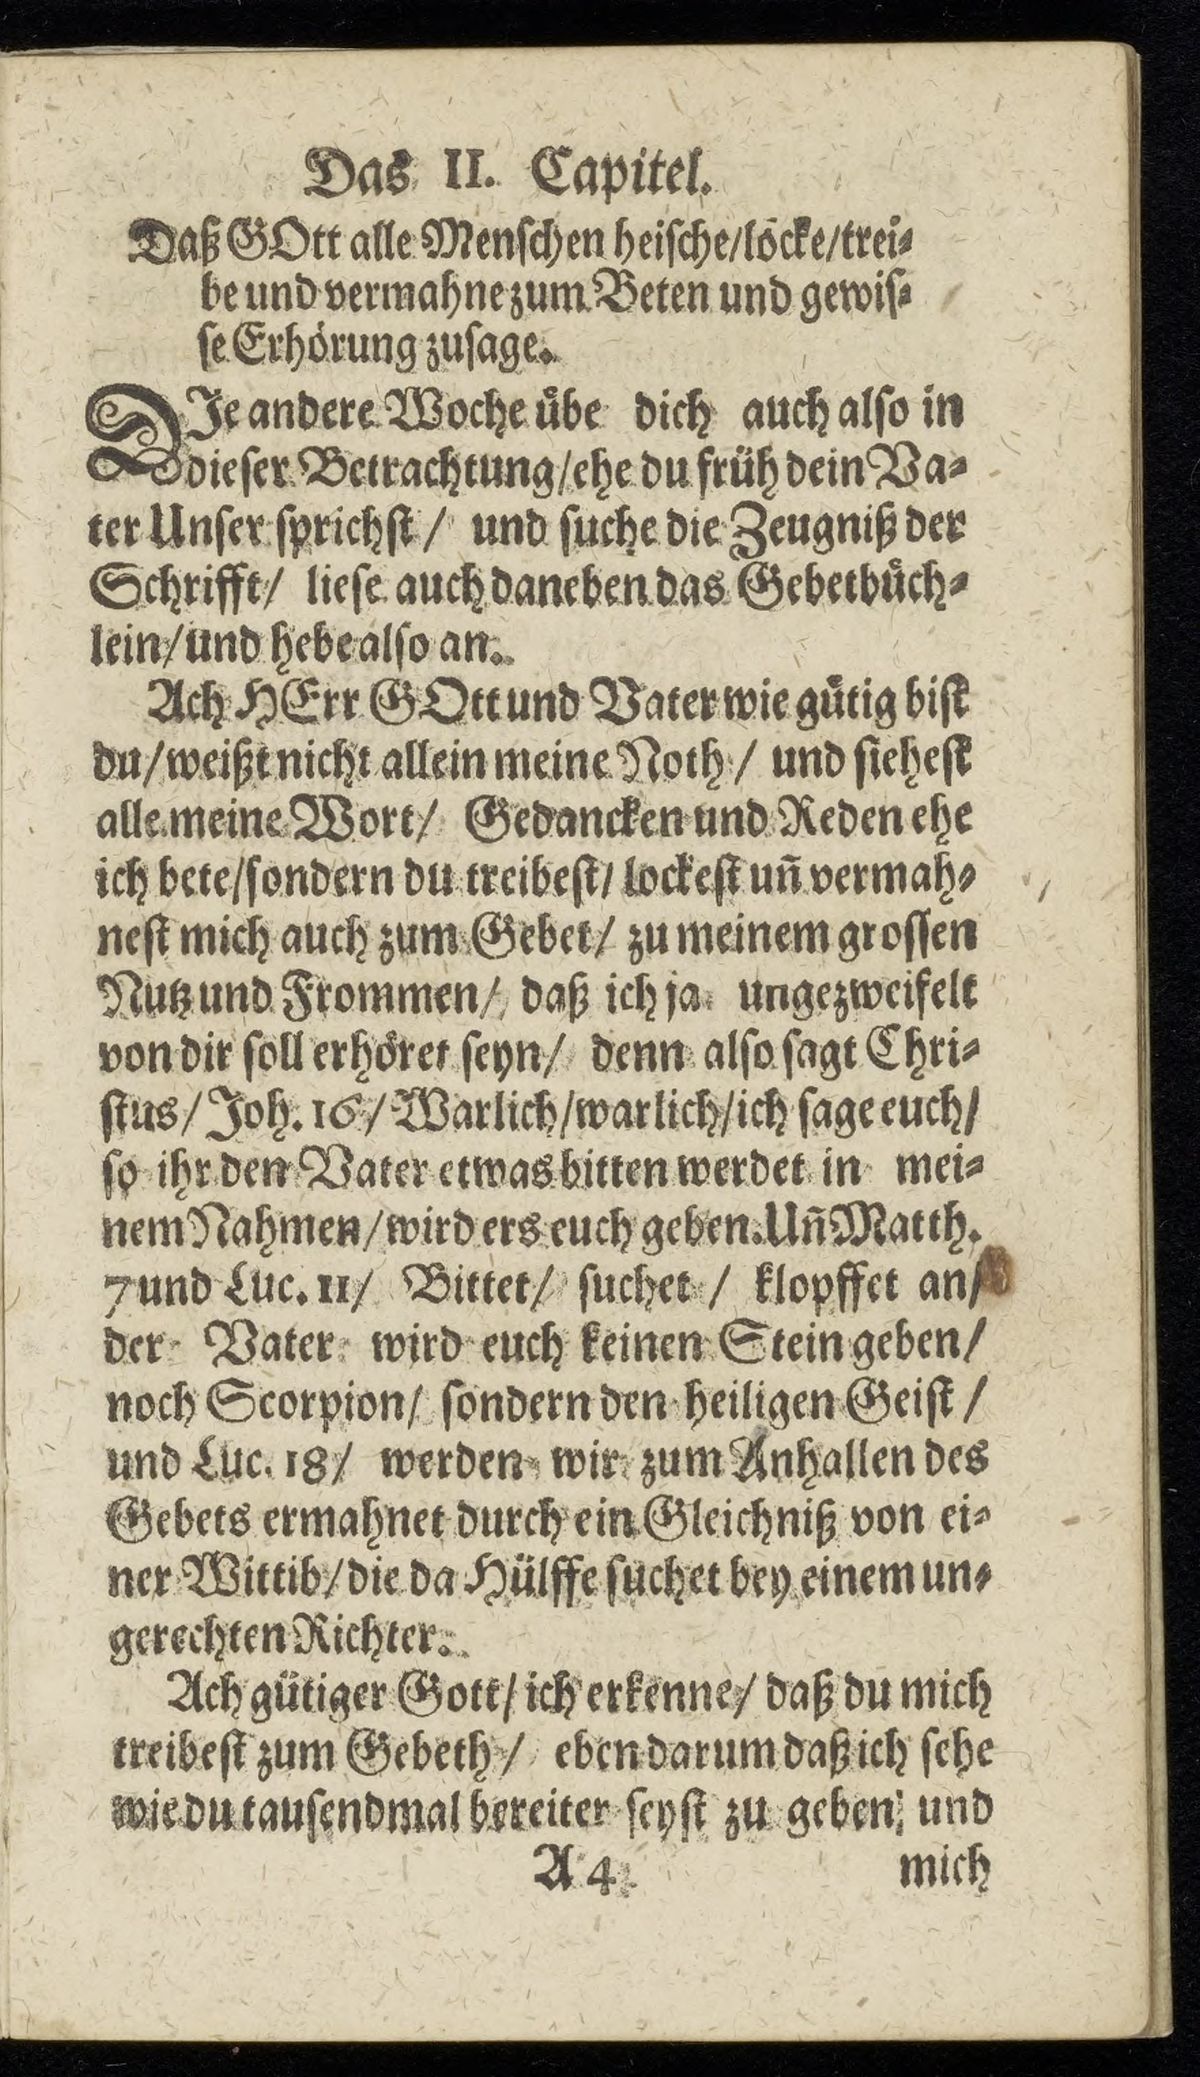 Das II. Capitel.
Daß GOtt alle Menschen heische/locke/trei-
be und vermahne zum Beten und gewis-
se Erhörung zusage.
DIe andere Woche übe dich auch also in
dieser Betrachtung/ehe du früh dein Va-
ter Unser sprichst/ und suche die Zeugniß der
Schrifft/ liese auch daneben das Gebetbüch-
lein/und hebe also an.
Ach HErr GOtt und Vater wie gütig bist
du/weißt nicht allein meine Noth/ und siehest
alle meine Wort/ Gedancken und Reden ehe
ich bete/sondern du treibest/lockest uñ vermah-
nest mich auch zum Gebet/ zu meinem grossen
Nutz und Frommen/ daß ich ja ungezweifelt
von dir soll erhöret seyn/ denn also sagt Chri-
stus/Joh. 16/Warlich/warlich/ich sage euch/
so ihr den Vater etwas bitten werdet in mei-
nem Nahmen/wird ers euch geben. Uñ Matth.
7 und Luc. 11/ Bittet/ suchet/ klopffet an/
der Vater wird euch keinen Stein geben/
noch Scorpion/ sondern den heiligen Geist/
und Luc. 18/ werden wir zum Anhallen des
Gebets ermahnet durch ein Gleichniß von ei-
ner Wittib/die da Hülffe suchet bey einem un-
gerechten Richter.
Ach gütiger Gott/ich erkenne/ daß du mich
treibest zum Gebeth/ eben darum daß ich sehe
wie du tausendmal bereiter seyst zu geben; und
A 4 mich